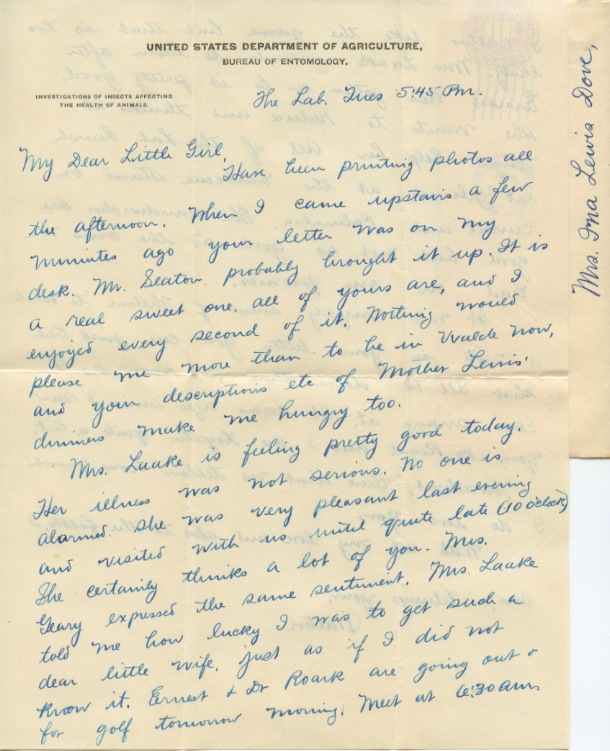 UNITED STATES DEPARTMENT OF AGRICULTURE,
BUREAU OF ENTOMOLOGY,
INVESTIGATIONS OF INSECTS AFFECTING
THE HEALTH OF ANIMALS.
The Lab, Tues 5:45 Pm.
My Dear Little Girl,
Have been printing photos all
the afternoon. When I came upstairs a few
minutes ago your letter was on my
desk. Mr. Seaton probably brought it up. It is
a real sweet one, all of yours are, and I
enjoyed every second of it. Nothing would
please me more than to be in Uvalde now,
and your descriptions etc of Mother Lewis'
dinners make me hungry too.
Mrs. Laake is feeling pretty good today.
Her illness was not serious. No one is
alarmed. She was very pleasant last evening
and visited with us until quite late (10 o'clock)
She certainly thinks a lot of you. Mrs.
Geary expressed the same sentiment. Mrs. Laake
told me how lucky I was to get such a
dear little wife, just as if I did not
know it. Ernest & Dr Roark are going out
for golf tomorrow morning. Meet at 6:30 am
Mrs. Ina Lewis Dove,